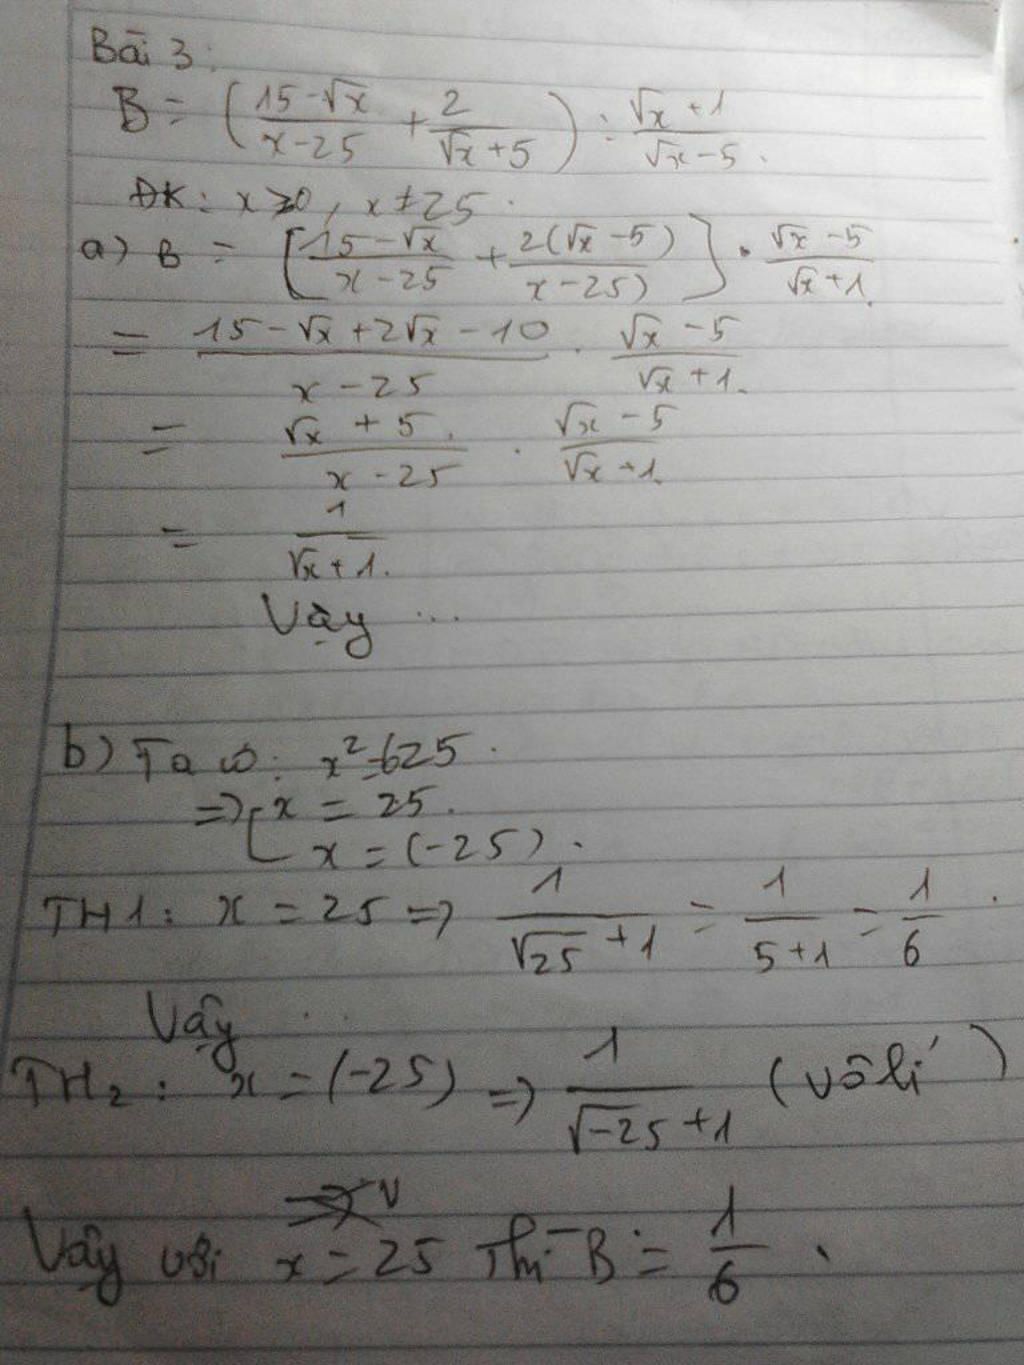 Bài 3:
B = ( (15 - √x)/(x - 25) + 2/(√x + 5) ) : (√x + 1)/(√x - 5).
ĐK: x ≥ 0, x ≠ 25.
a) B = [ (15 - √x)/(x - 25) + 2(√x - 5)/(x - 25) ] . (√x - 5)/(√x + 1).
= (15 - √x + 2√x - 10)/(x - 25) . (√x - 5)/(√x + 1).
= (√x + 5)/(x - 25) . (√x - 5)/(√x + 1).
= 1/(√x + 1).
Vậy ...
b) Ta có: x² = 625.
=> [ x = 25.
x = (-25).
TH1: x = 25 => 1/(√25 + 1) = 1/(5 + 1) = 1/6.
Vậy ...
TH2: x = (-25) => 1/(√-25 + 1) (vô lí)
Vậy với x = 25 thì B = 1/6.